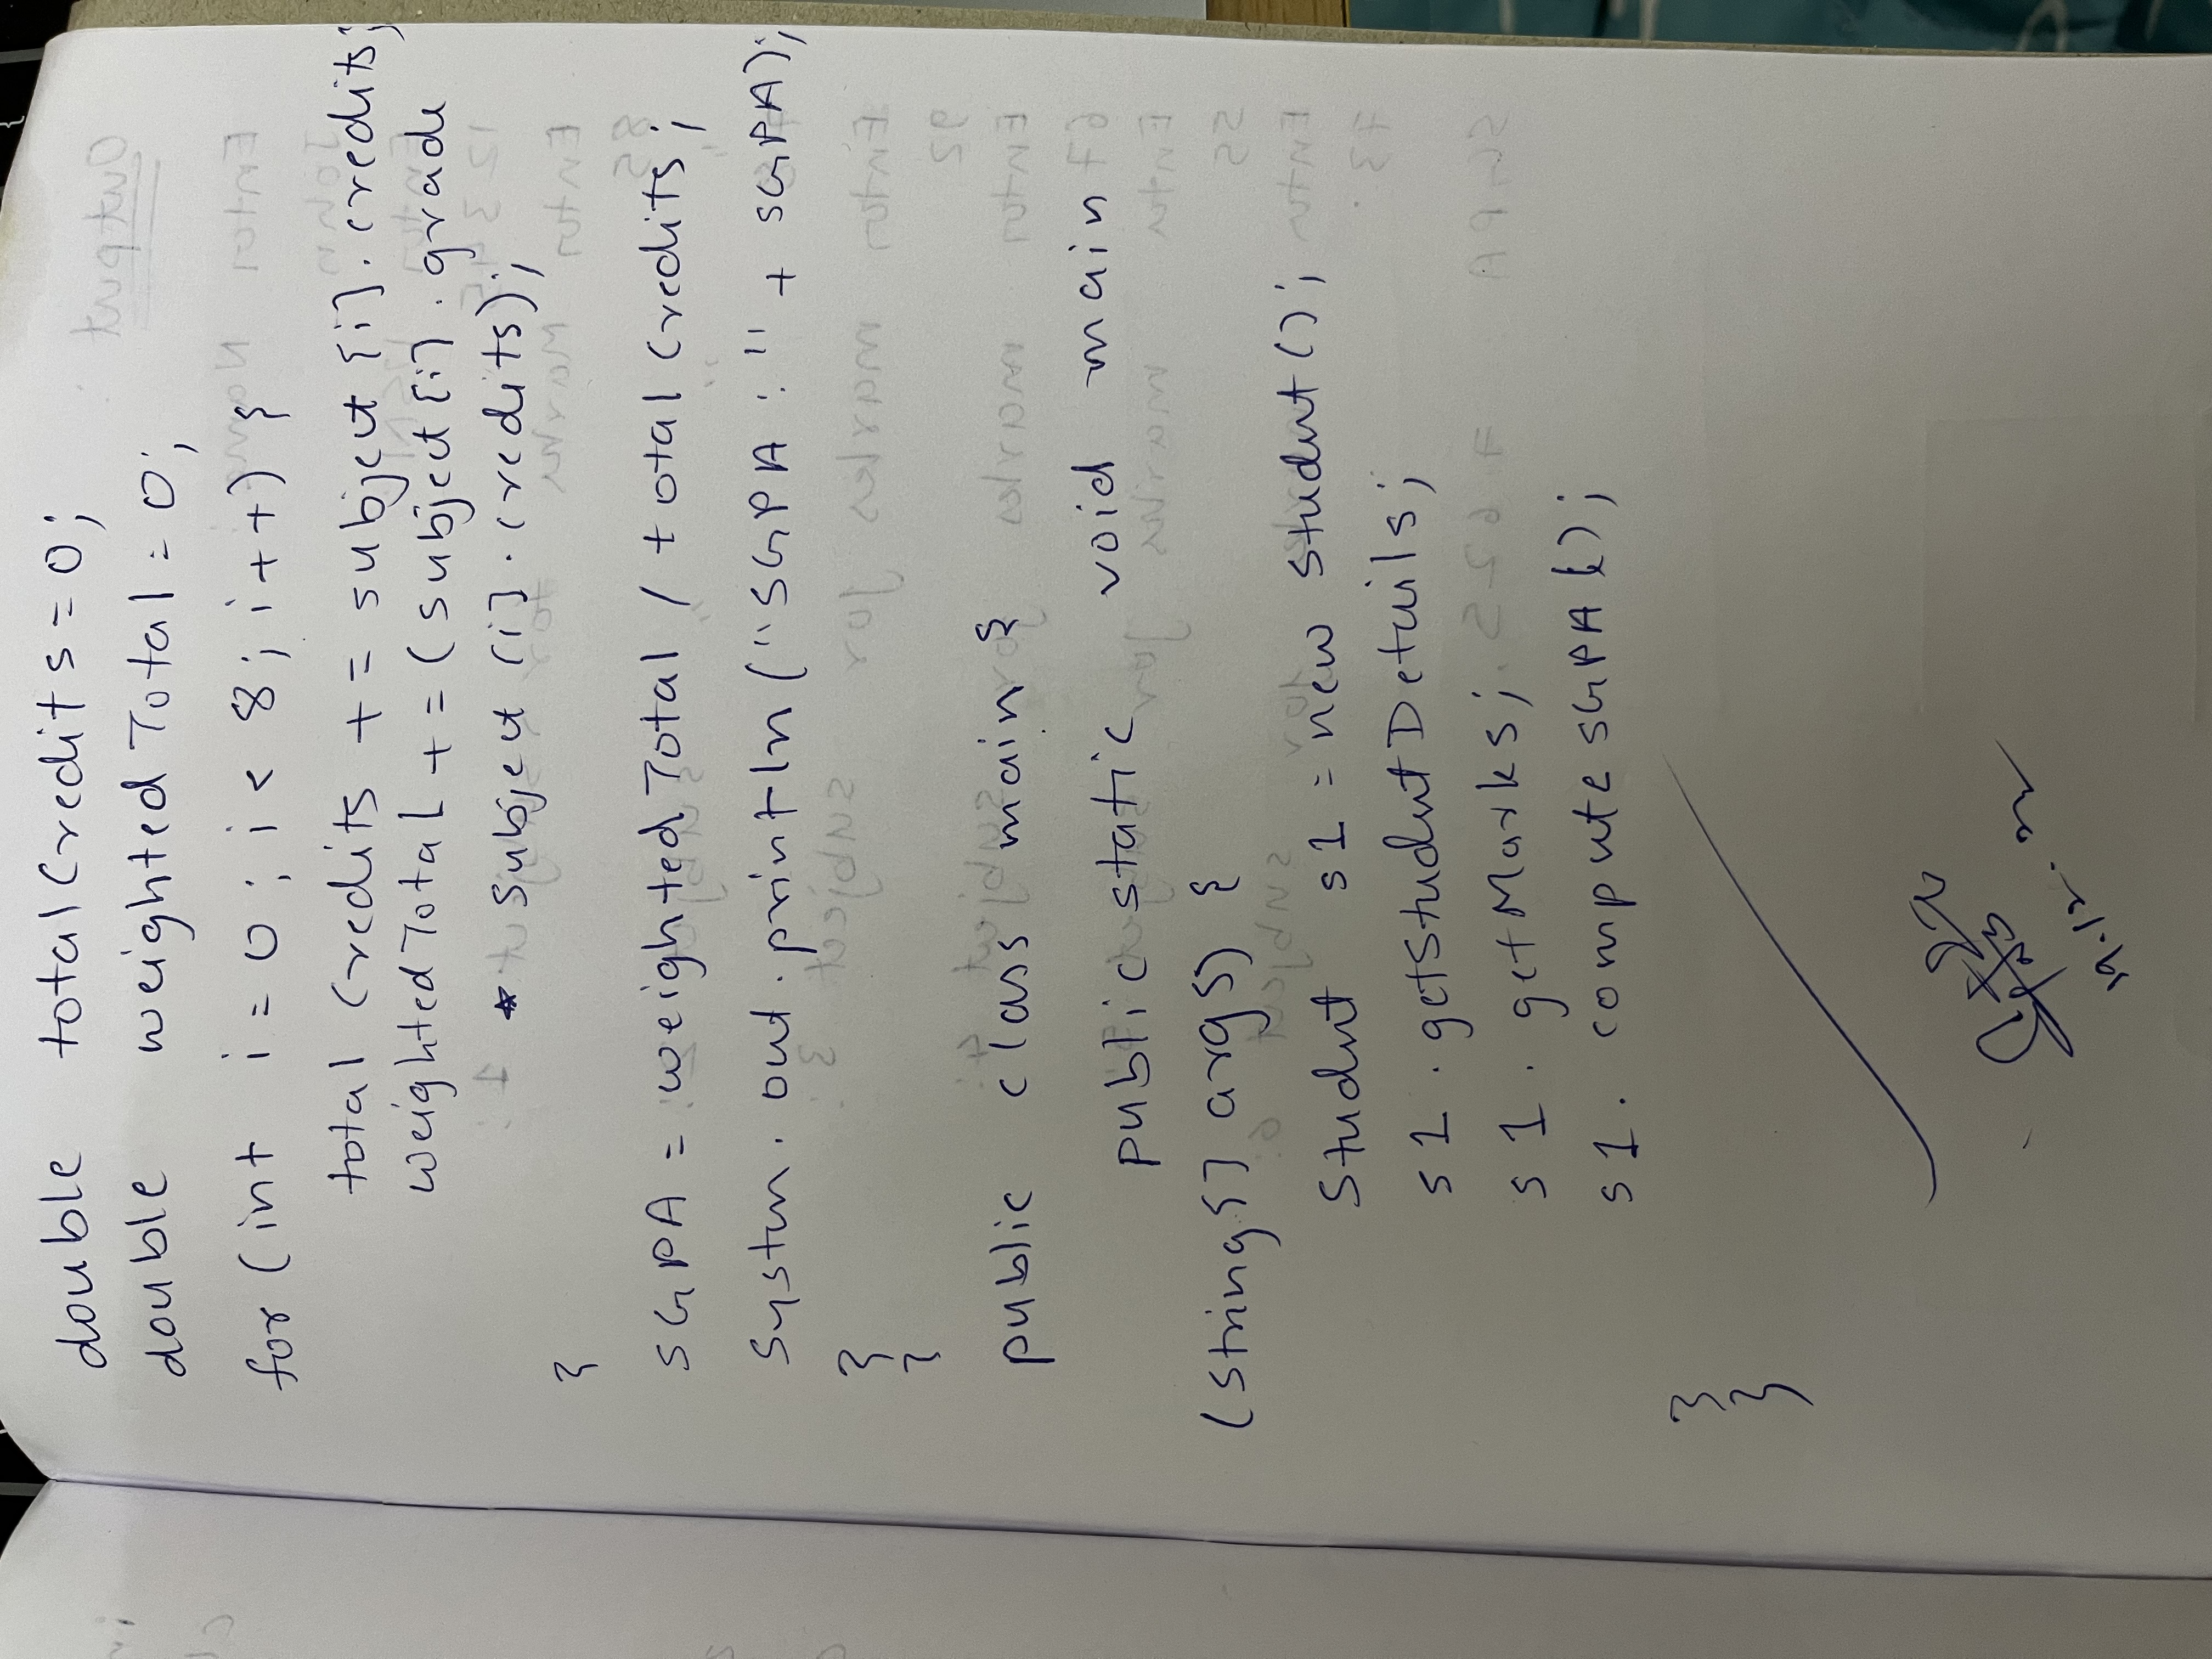 double totalCredits = 0;
double weightedTotal = 0;
for (int i = 0; i < 8; i++) {
total Credits += subject [i]. credits;
weightedTotal += (subject [i]. grade
* subject [i]. credits);
}
SGPA = weightedTotal / total Credits;
System. out. println ("SGPA : " + SGPA);
}
}
public class main {
public static void main
(string[] args) {
Student s1 = new student ();
s1 . getStudentDetails;
s1 . getMarks;
s1. compute SGPA ();
}
}
19.12.